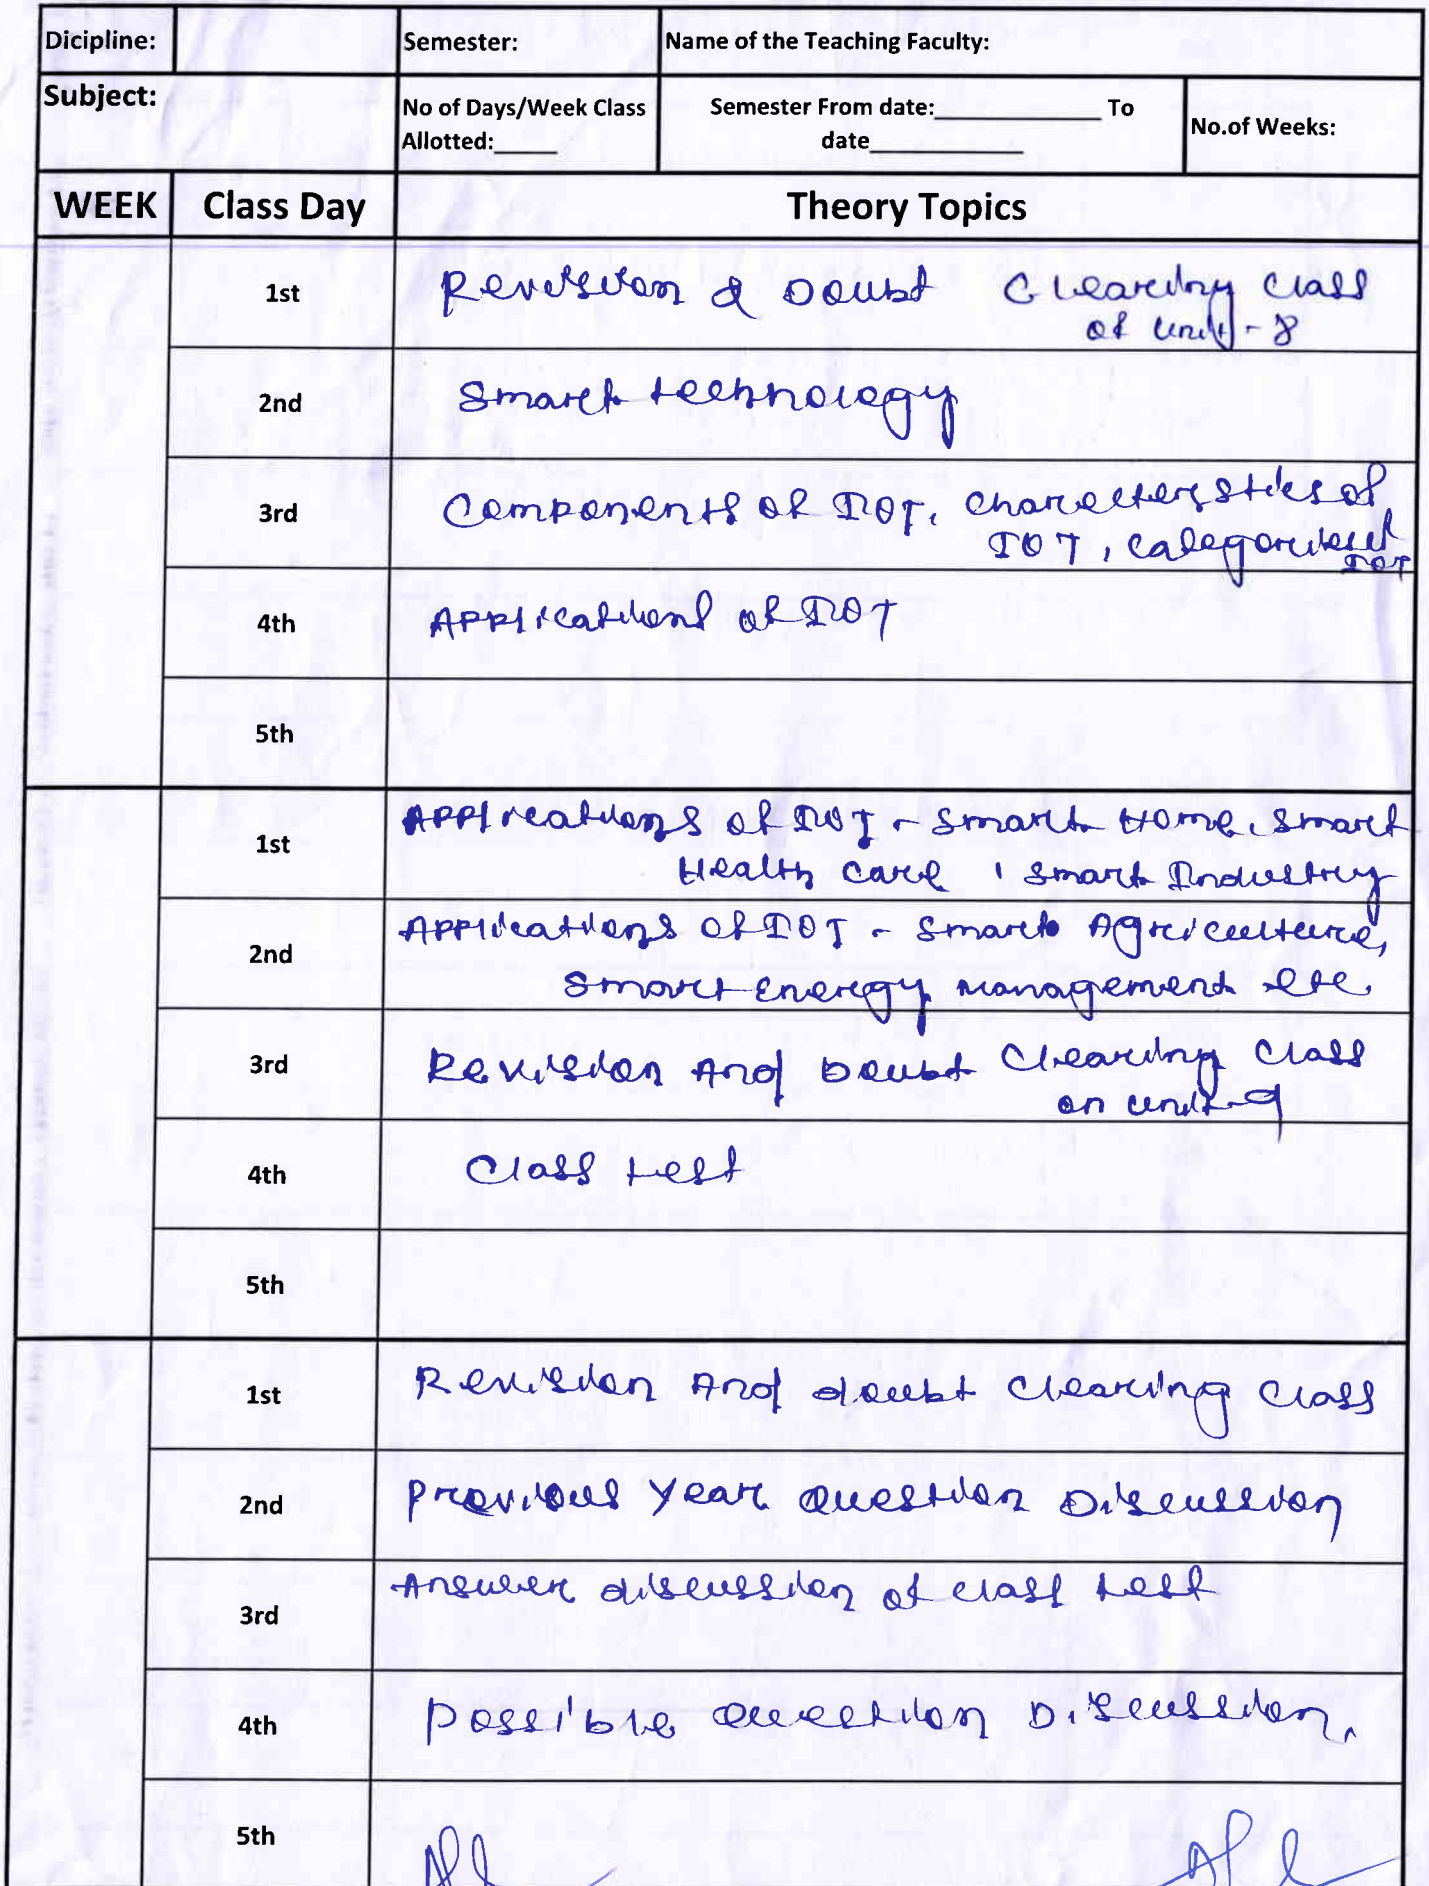 Dicipline: Semester: Name of the Teaching Faculty:
Subject: No of Days/Week Class Allotted:_____ Semester From date:_____________ To date____________ No.of Weeks:
WEEK Class Day Theory Topics
1st Revision & Doubt Clearing Class
of unit - 8
2nd Smart technology
3rd Components of IOT, Characterstics of
IOT, Categories of
IOT
4th Applications of IOT
5th
1st Applications of IOT - Smart Home, Smart
Health Care, Smart Industry
2nd Applications of IOT - Smart Agriculture,
Smart Energy management etc.
3rd Revision And Doubt Clearing Class
on unit-9
4th Class test
5th
1st Revision And doubt Clearing Class
2nd Previous Year Question Discussion
3rd Answer discussion of class test
4th Possible Question Discussion.
5th